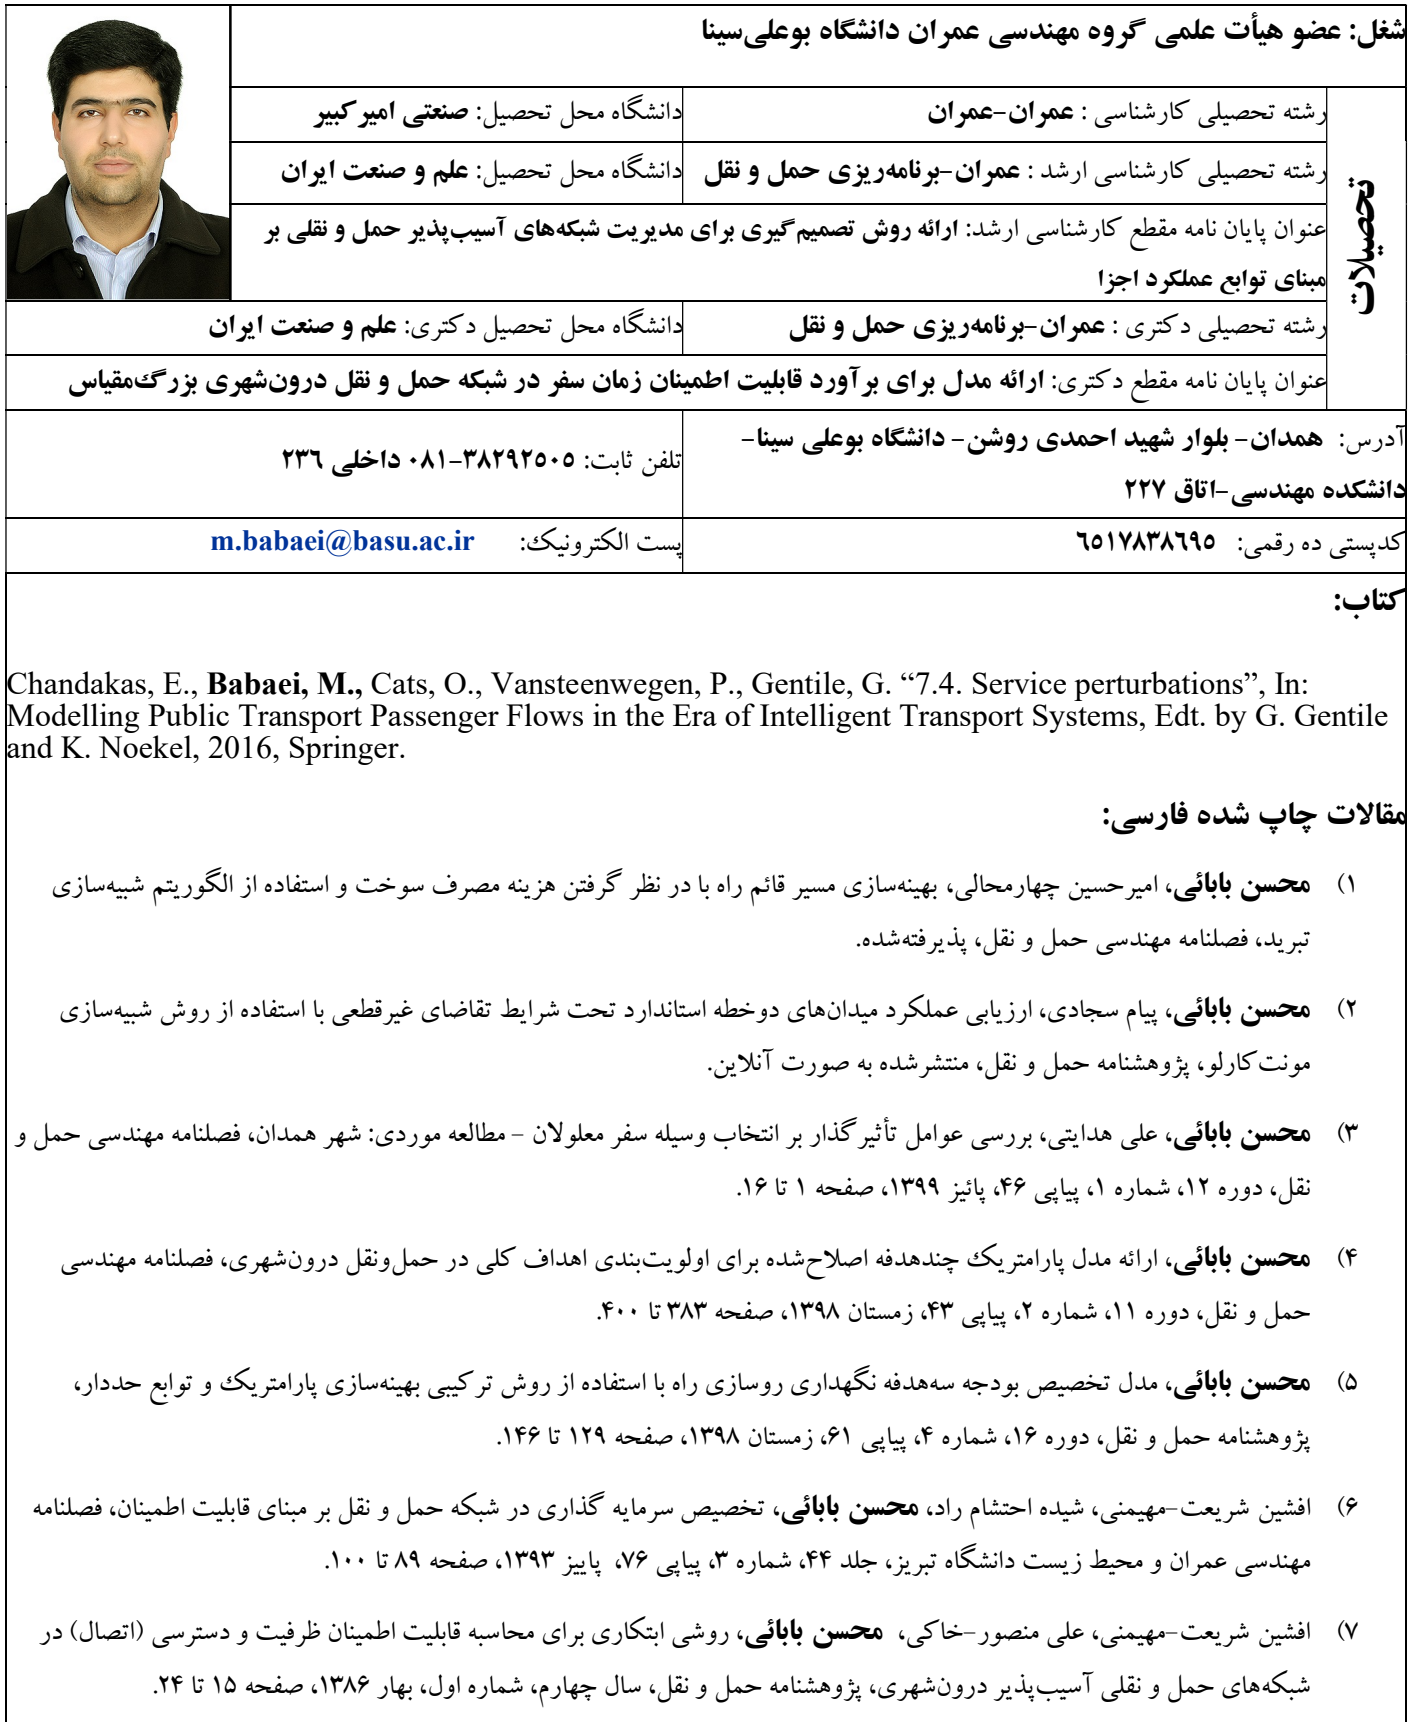 شغل: عضو هیأت علمی گروه مهندسی عمران دانشگاه بوعلی‌سینا
تحصیلات
رشته تحصیلی کارشناسی : عمران-عمران
دانشگاه محل تحصیل: صنعتی امیرکبیر
رشته تحصیلی کارشناسی ارشد : عمران-برنامه‌ریزی حمل و نقل
دانشگاه محل تحصیل: علم و صنعت ایران
عنوان پایان نامه مقطع کارشناسی ارشد: ارائه روش تصمیم‌گیری برای مدیریت شبکه‌های آسیب‌پذیر حمل و نقلی بر
مبنای توابع عملکرد اجزا
رشته تحصیلی دکتری : عمران-برنامه‌ریزی حمل و نقل
دانشگاه محل تحصیل دکتری: علم و صنعت ایران
عنوان پایان نامه مقطع دکتری: ارائه مدل برای برآورد قابلیت اطمینان زمان سفر در شبکه حمل و نقل درون‌شهری بزرگ‌مقیاس
آدرس: همدان- بلوار شهید احمدی روشن- دانشگاه بوعلی سینا-
دانشکده مهندسی-اتاق ۲۲۷
تلفن ثابت: ۳۸۲۹۲۵۰۵-۰۸۱ داخلی ۲۳۶
کدپستی ده رقمی: ۶۵۱۷۸۳۸۶۹۵
پست الکترونیک: m.babaei@basu.ac.ir
کتاب:
Chandakas, E., Babaei, M., Cats, O., Vansteenwegen, P., Gentile, G. “7.4. Service perturbations”, In:
Modelling Public Transport Passenger Flows in the Era of Intelligent Transport Systems, Edt. by G. Gentile
and K. Noekel, 2016, Springer.
مقالات چاپ شده فارسی:
۱) محسن بابائی، امیرحسین چهارمحالی، بهینه‌سازی مسیر قائم راه با در نظر گرفتن هزینه مصرف سوخت و استفاده از الگوریتم شبیه‌سازی
تبرید، فصلنامه مهندسی حمل و نقل، پذیرفته‌شده.
۲) محسن بابائی، پیام سجادی، ارزیابی عملکرد میدان‌های دوخطه استاندارد تحت شرایط تقاضای غیرقطعی با استفاده از روش شبیه‌سازی
مونت‌کارلو، پژوهشنامه حمل و نقل، منتشرشده به صورت آنلاین.
۳) محسن بابائی، علی هدایتی، بررسی عوامل تأثیرگذار بر انتخاب وسیله سفر معلولان - مطالعه موردی: شهر همدان، فصلنامه مهندسی حمل و
نقل، دوره ۱۲، شماره ۱، پیاپی ۴۶، پائیز ۱۳۹۹، صفحه ۱ تا ۱۶.
۴) محسن بابائی، ارائه مدل پارامتریک چندهدفه اصلاح‌شده برای اولویت‌بندی اهداف کلی در حمل‌ونقل درون‌شهری، فصلنامه مهندسی
حمل و نقل، دوره ۱۱، شماره ۲، پیاپی ۴۳، زمستان ۱۳۹۸، صفحه ۳۸۳ تا ۴۰۰.
۵) محسن بابائی، مدل تخصیص بودجه سه‌هدفه نگهداری روسازی راه با استفاده از روش ترکیبی بهینه‌سازی پارامتریک و توابع حددار،
پژوهشنامه حمل و نقل، دوره ۱۶، شماره ۴، پیاپی ۶۱، زمستان ۱۳۹۸، صفحه ۱۲۹ تا ۱۴۶.
۶) افشین شریعت-مهیمنی، شیده احتشام راد، محسن بابائی، تخصیص سرمایه گذاری در شبکه حمل و نقل بر مبنای قابلیت اطمینان، فصلنامه
مهندسی عمران و محیط زیست دانشگاه تبریز، جلد ۴۴، شماره ۳، پیاپی ۷۶، پاییز ۱۳۹۳، صفحه ۸۹ تا ۱۰۰.
۷) افشین شریعت-مهیمنی، علی منصور-خاکی، محسن بابائی، روشی ابتکاری برای محاسبه قابلیت اطمینان ظرفیت و دسترسی (اتصال) در
شبکه‌های حمل و نقلی آسیب‌پذیر درون‌شهری، پژوهشنامه حمل و نقل، سال چهارم، شماره اول، بهار ۱۳۸۶، صفحه ۱۵ تا ۲۴.